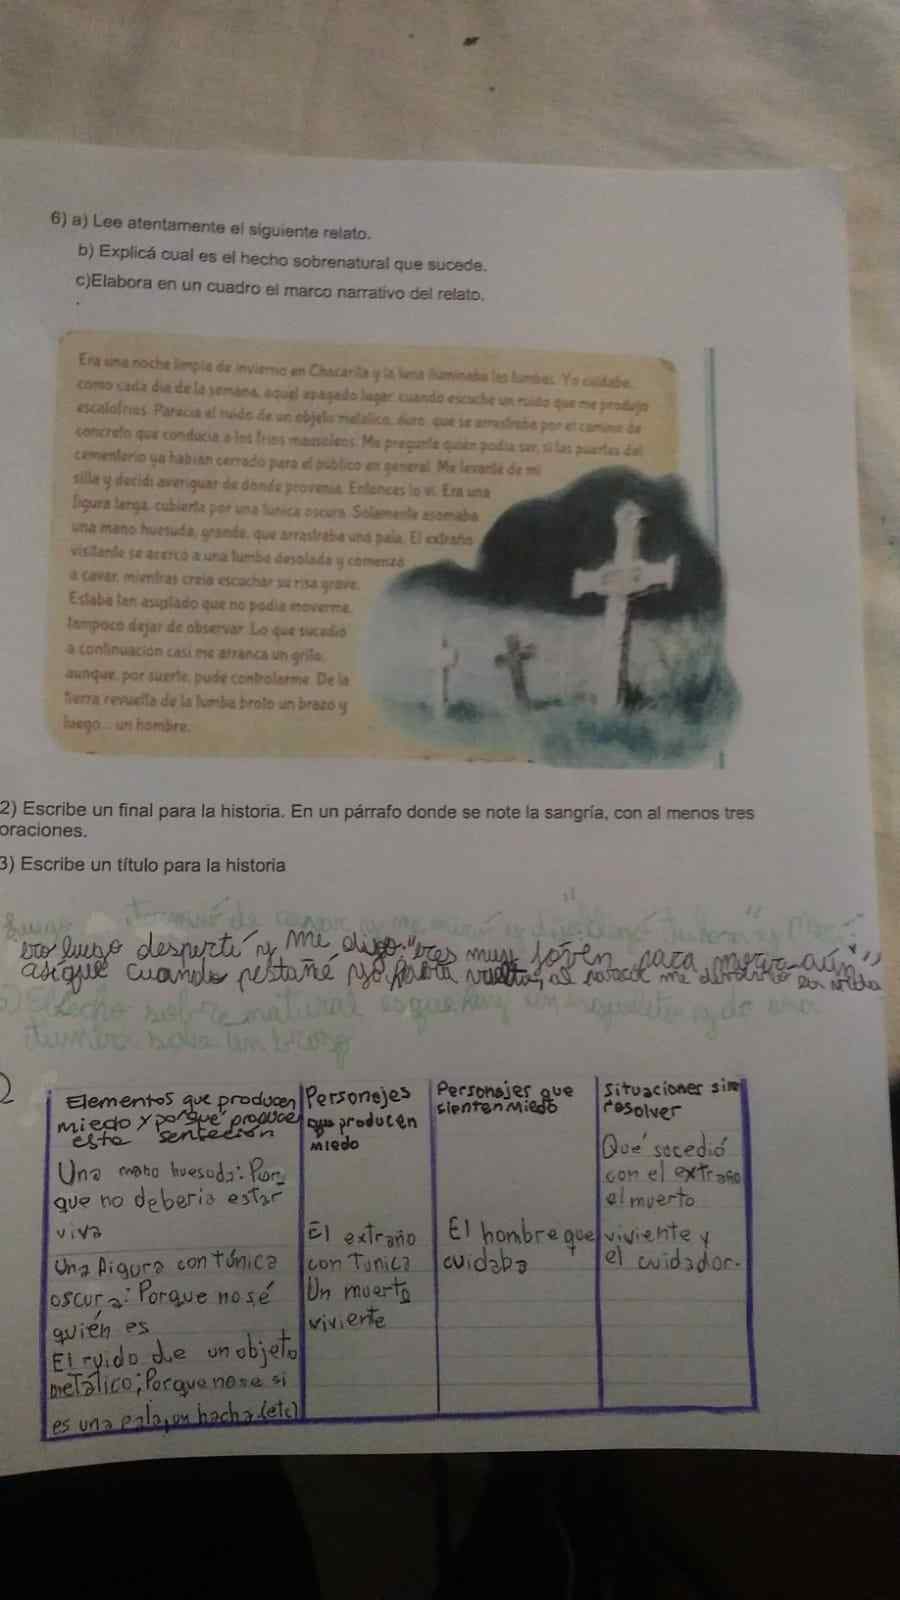 6) a) Lee atentamente el siguiente relato.
b) Explicá cual es el hecho sobrenatural que sucede.
c)Elabora en un cuadro el marco narrativo del relato.
Era una noche limpia de invierno en Chacarita y la luna iluminaba las tumbas. Yo cuidaba,
como cada día de la semana, aquel apagado lugar, cuando escuché un ruido que me produjo
escalofríos. Parecía el ruido de un objeto metálico, duro, que se arrastraba por el camino de
concreto que conducía a los fríos mausoleos. Me pregunté quién podía ser, si las puertas del
cementerio ya habían cerrado para el público en general. Me levanté de mi
silla y decidí averiguar de dónde provenía. Entonces lo vi. Era una
figura larga, cubierta por una túnica oscura. Solamente asomaba
una mano huesuda, grande, que arrastraba una pala. El extraño
visitante se acercó a una tumba desolada y comenzó
a cavar, mientras creía escuchar su risa grave.
Estaba tan asustado que no podía moverme,
tampoco dejar de observar. Lo que sucedió
a continuación casi me arranca un grito,
aunque, por suerte, pude controlarme. De la
tierra revuelta de la tumba brotó un brazo y
luego... un hombre.
2) Escribe un final para la historia. En un párrafo donde se note la sangría, con al menos tres
oraciones.
3) Escribe un título para la historia
luego terminó de cavar y me miró y dijo
luego desperté y me dijo: "eres muy joven para morir aún"
asique cuando pestañé yo al parecer me
hecho sobre natural es que hay un esqueleto y de una
tumba sale un brazo
Elementos que producen Personajes Personajes que Situaciones sin
miedo y porqué produce que producen sienten miedo resolver
esta sentación miedo
Qué sucedió
Una mano huesuda: Por con el extraño
que no debería estar el muerto
viva El extraño El hombre que viviente y
Una figura con túnica con Tunica cuidaba el cuidador.
oscura: Porque no sé Un muerto
quién es viviente
El ruido de un objeto
metálico; Porque no se si
es una pala, un hacha (etc)